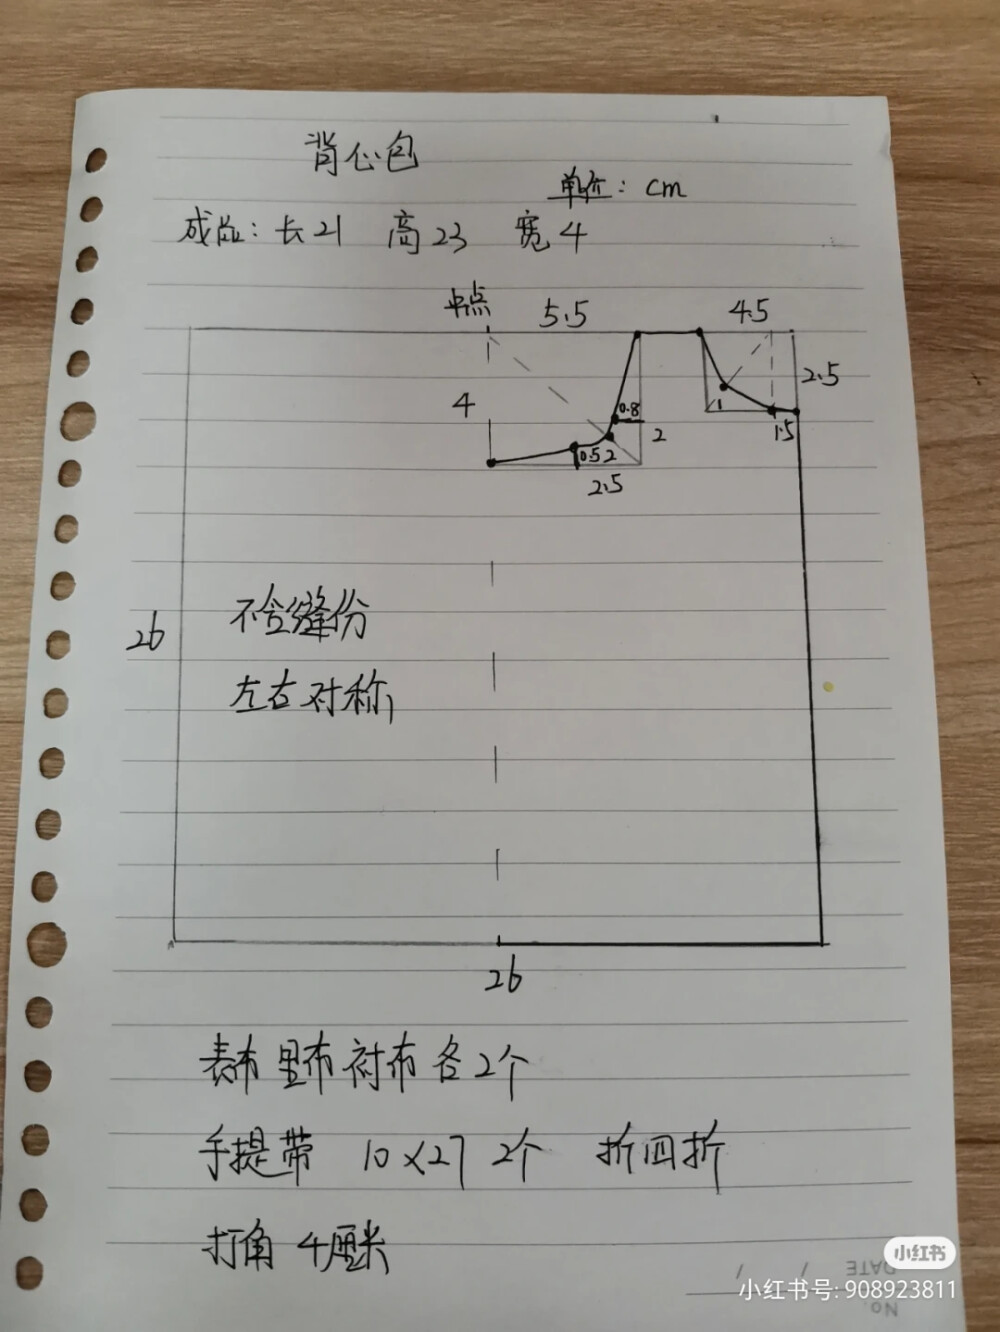 背心包
单位：cm
成品：长21 高23 宽4
中点 5.5 4.5
2.5
4 0.8 1
2 1.5
0.5 2
2.5
不含缝份
26
左右对称
26
表布 里布 衬布 各2个
手提带 10×27 2个 折四折
打角 4厘米
小红书
DATE / /
小红书号: 908923811
No.